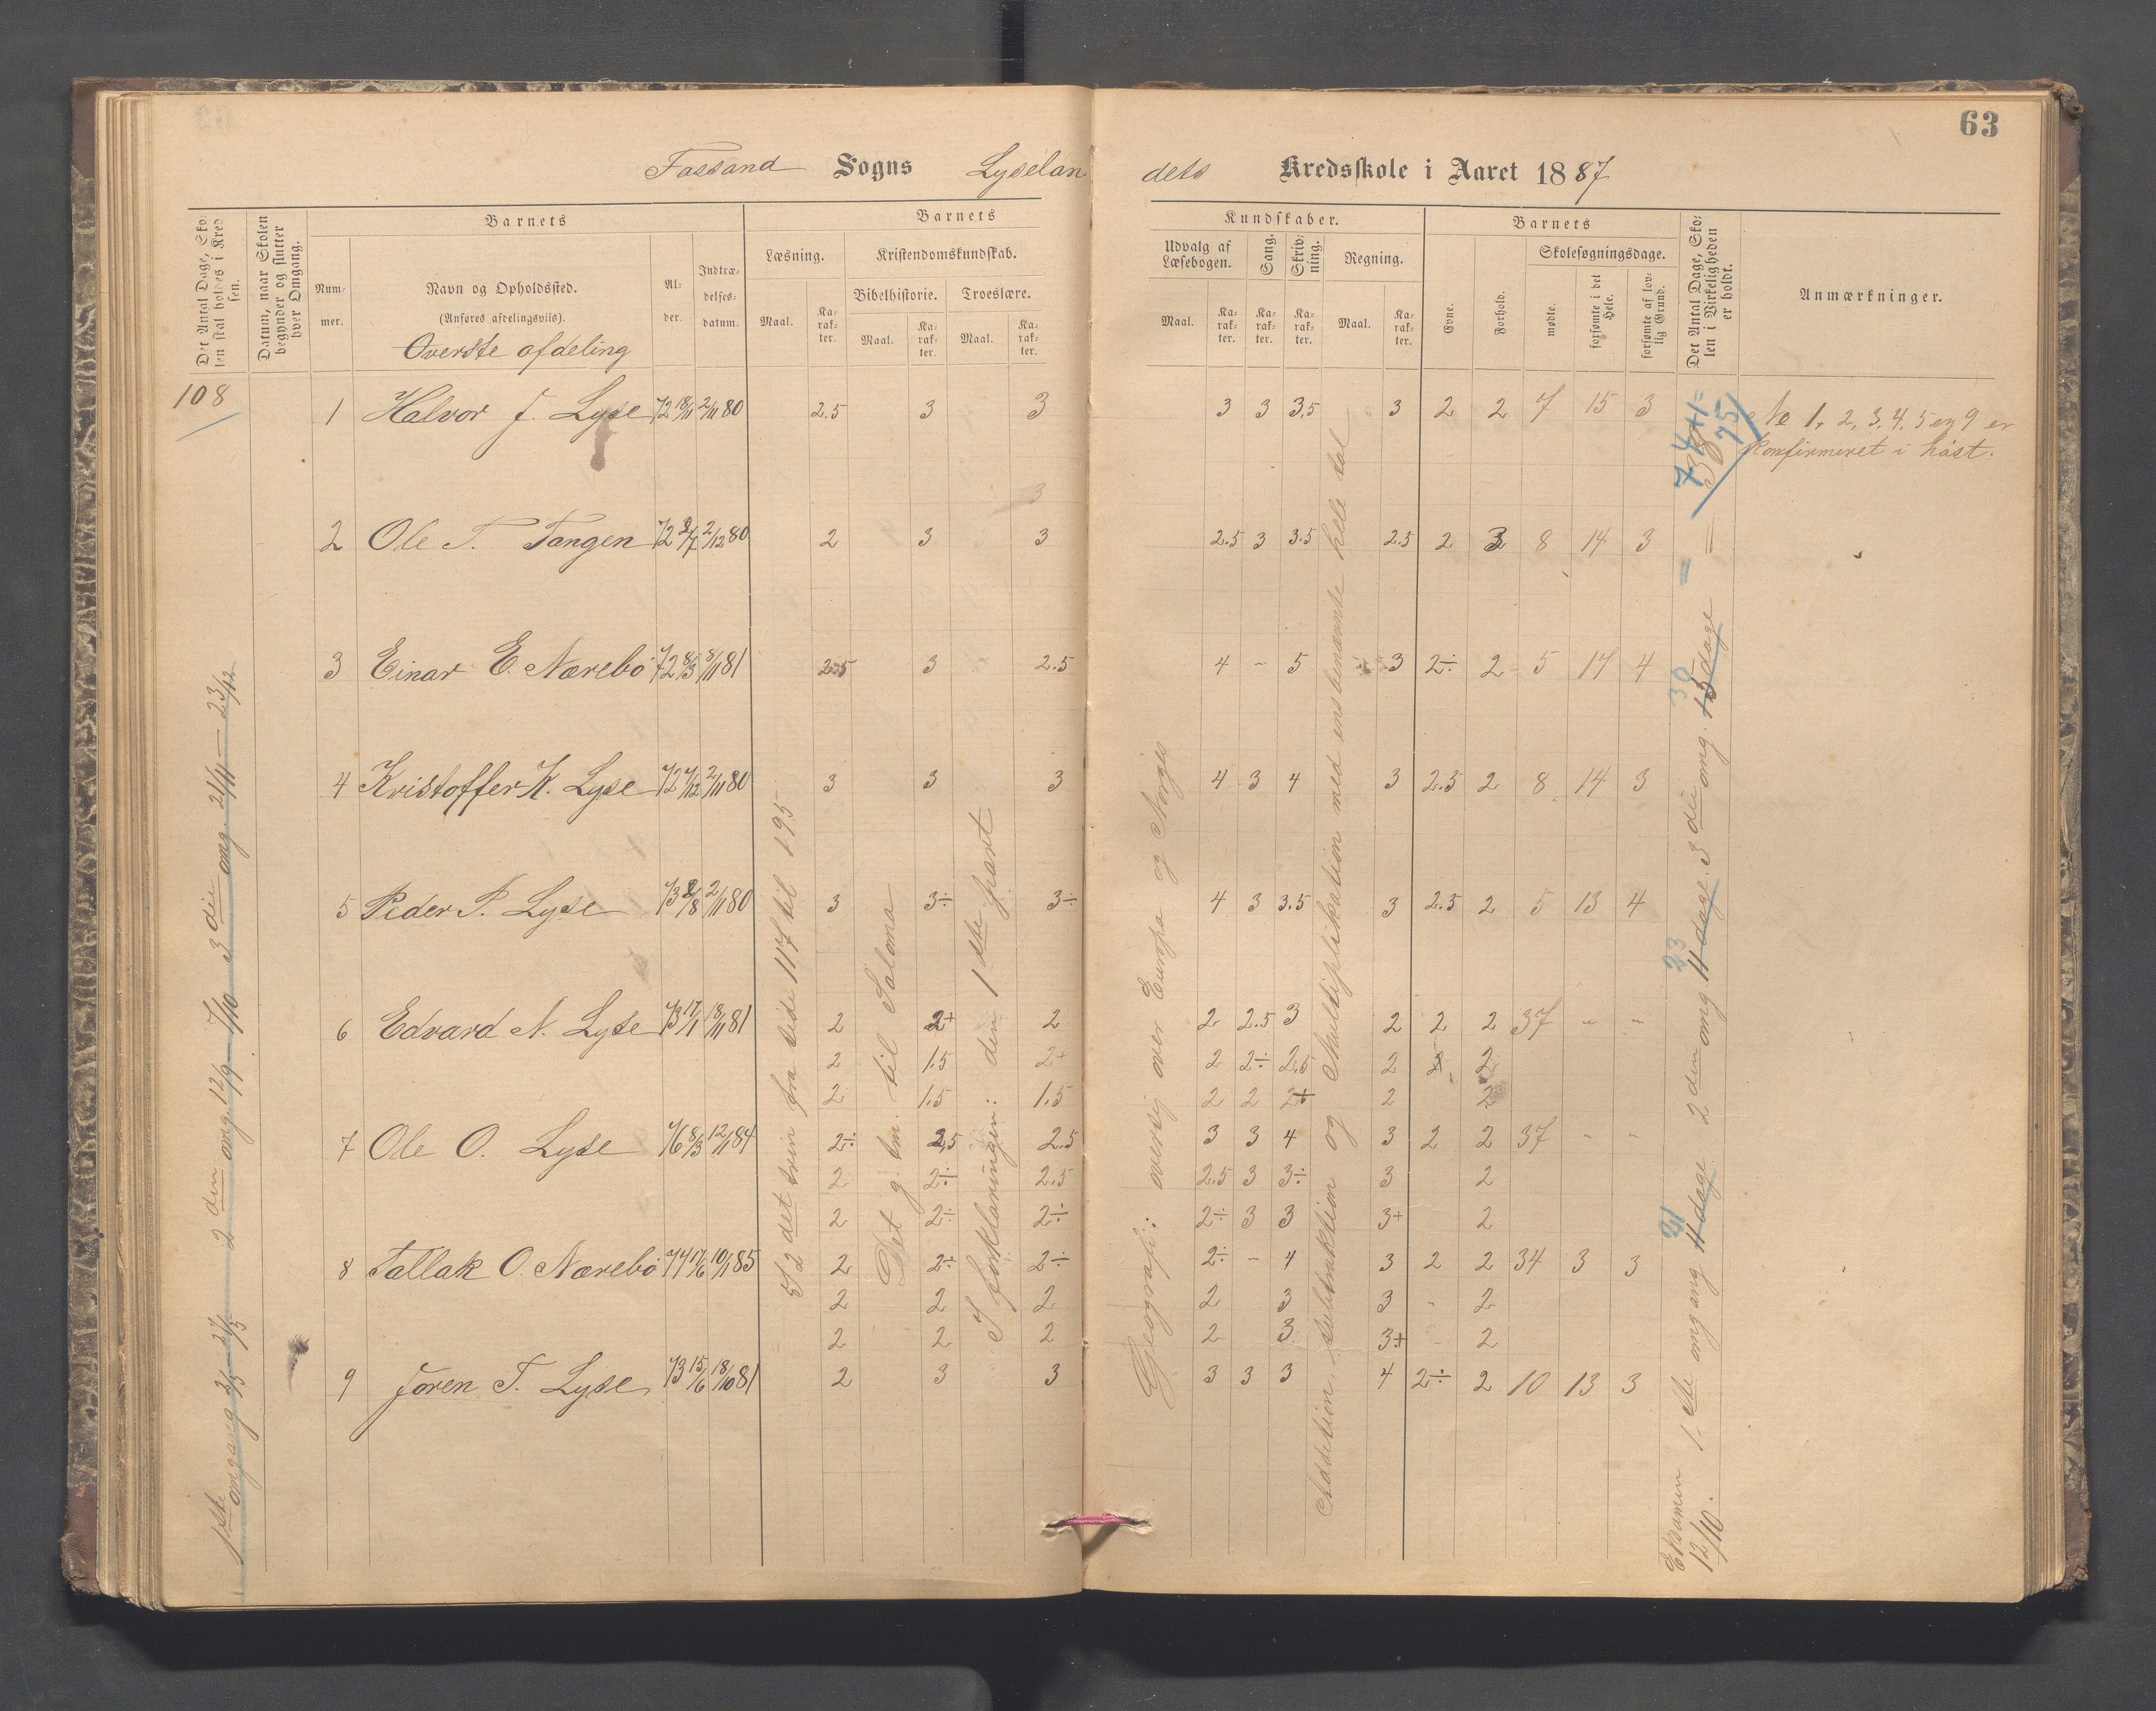 63
Fossand Sogns Lyselan
dets Kredsskole i Aaret 1887
Det Antal Dage, Sko-
len skal holdes i Kred
sen.
Datum, naar Skolen
begynder og slutter
hver Omgang.
Barnets
Num-
mer.
Navn og Opholdssted.
(Anføres afdelingsvis).
Overste afdeling
Al-
der.
Indtræ-
delses-
datum.
Barnets
Læsning.
Kristendomskundskab.
Bibelhistorie. Troeslære.
Maal. Ka-
rak-
ter. Maal. Ka-
rak-
ter. Maal. Ka-
rak-
ter.
Kundskaber.
Udvalg af
Læsebogen.
Sang.
Skriv-
ning.
Regning.
Maal. Ka-
rak-
ter. Ka-
rak-
ter. Ka-
rak-
ter. Maal. Ka-
rak-
ter.
Barnets
Evne.
Forhold.
Skolesøgningsdage.
mødte.
forsømte i det
Hele.
forsømte af lov-
lig Grund.
Det Antal Dage, Sko-
len i Virkeligheden
er holdt.
Anmærkninger.
108
1 Halvor J. Lyse 72 18/11 2/11 80 2.5 3 3 3 3 3,5 3 2 2 7 15 3
No 1, 2, 3, 4, 5 og 9 er
konfirmeret i høst.
74+1=
75
38
3
2 Ole T. Tangen 72 2/12 80 2 3 3 2.5 3 3.5 2.5 2 3 8 14 3
3 Einar E. Nærebø 72 8/3 8/11 81 2.5 3 2.5 4 - 5 3 2÷ 2 5 17 4
4 Kristoffer K. Lyse 72 7/12 2/11 80 3 3 3 4 3 4 3 2.5 2 8 14 3
5 Peder P. Lyse 73 2/11 80 3 3÷ 3÷ 4 3 3.5 3 2.5 2 5 13 4
6 Edvard N. Lyse 73 17/1 18/11 81 2 2+ 2 2 2.5 3 2 2 2 37 " "
2 1.5 2+ 2 2÷ 2,5 2 2
2 1.5 1.5 2 2 2+ 2 2
7 Ole O. Lyse 76 8/3 12/11 84 2÷ 2,5 2.5 3 3 4 3 2 2 37 " "
2 2÷ 2.5 2.5 3 3÷ 3 2
2 2÷ 2÷ 2÷ 3 3 3+ 2
8 Tallak O. Nærebø 74 17/6 10/11 85 2 2÷ 2÷ 2÷ - 4 3 2 2 34 3 3
2 2 2 2 3 3 2
2 2 2 2 3 3+ 2
9 Joren T. Lyse 73 15/6 18/10 81 2 3 3 3 3 3 4 2÷ 2 10 13 3
1ste omgang 3/5 - 27/5 2den omg. 12/9 - 7/10 3die omg. 2/11 - 23/12
5/2 det trin fra side 117 til 195
Det g. tm. til Saloma
I forklaringen: den 1ste part
Geografi: oversig over Europa og Norges
Addition, subtraktion og Multiplikation med ensbenævnte hele tal
Eksamen
12/10.
1ste omgang 11 dage 2den omg 11 dage. 3die omg. 15 dage =
21
23
30